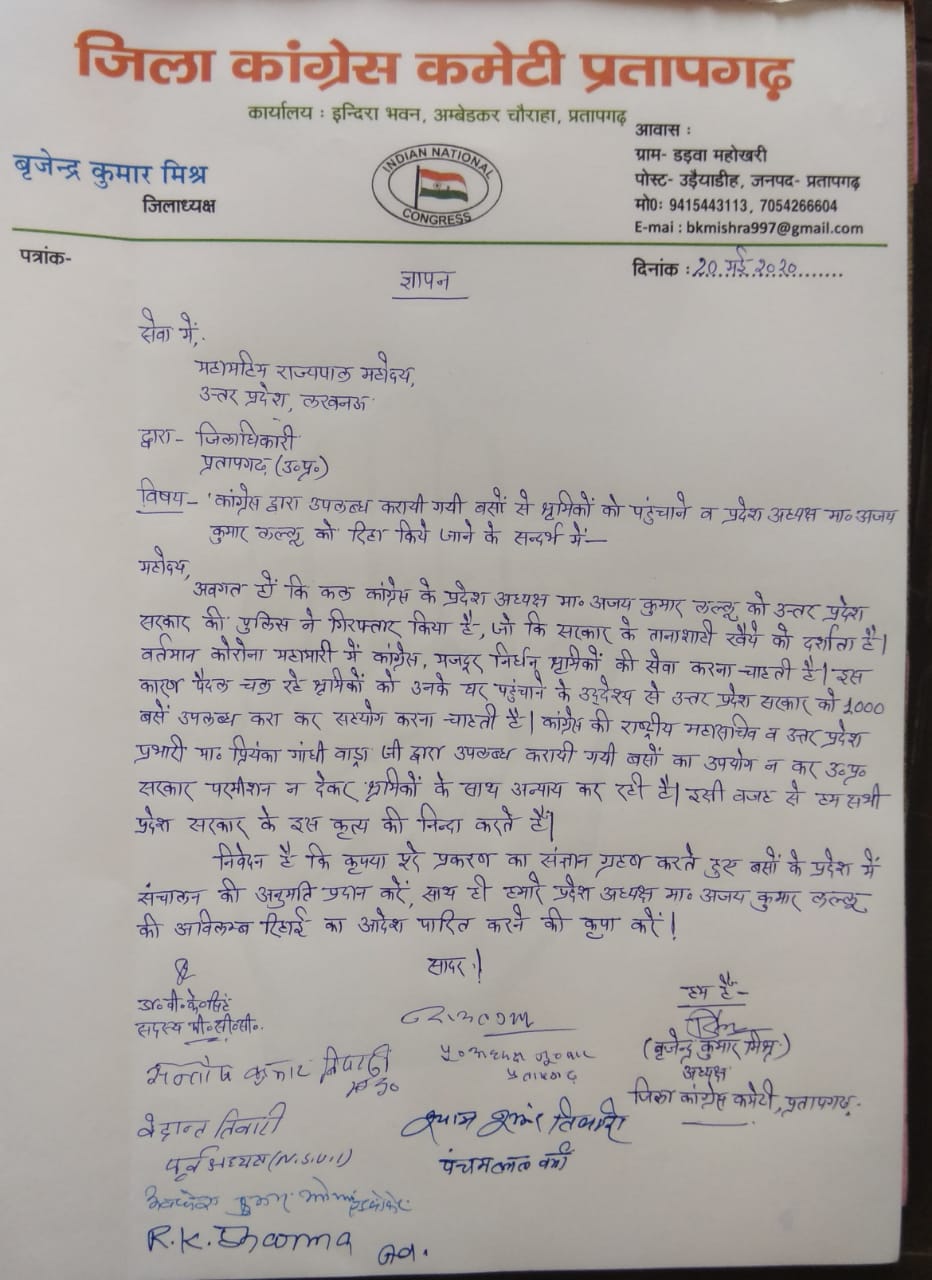 जिला कांग्रेस कमेटी प्रतापगढ़
कार्यालय : इन्दिरा भवन, अम्बेडकर चौराहा, प्रतापगढ़
बृजेन्द्र कुमार मिश्र
जिलाध्यक्ष
INDIAN NATIONAL
CONGRESS
आवास :
ग्राम- डड़वा महोखरी
पोस्ट- उड़ैयाडीह, जनपद- प्रतापगढ़
मो0: 9415443113, 7054266604
E-mai : bkmishra997@gmail.com
पत्रांक-
दिनांक : 20 मई 2020
ज्ञापन
सेवा में,
महामहिम राज्यपाल महोदय,
उत्तर प्रदेश, लखनऊ
द्वारा- जिलाधिकारी
प्रतापगढ़ (उ०प्र०)
विषय- 'कांग्रेस द्वारा उपलब्ध करायी गयी बसों से श्रमिकों को पहुंचाने व प्रदेश अध्यक्ष मा० अजय
कुमार लल्लू को रिहा किये जाने के सन्दर्भ में—
महोदय,
अवगत हों कि कल कांग्रेस के प्रदेश अध्यक्ष मा० अजय कुमार लल्लू को उत्तर प्रदेश
सरकार की पुलिस ने गिरफ्तार किया है, जो कि सरकार के तानाशाही रवैये को दर्शाता है|
वर्तमान कोरोना महामारी में कांग्रेस, मजदूर निर्धन श्रमिकों की सेवा करना चाहती है| इस
कारण पैदल चल रहे श्रमिकों को उनके घर पहुंचाने के उद्देश्य से उत्तर प्रदेश सरकार को 1000
बसें उपलब्ध करा कर सहयोग करना चाहती है| कांग्रेस की राष्ट्रीय महासचिव व उत्तर प्रदेश
प्रभारी मा० प्रियंका गांधी वाड्रा जी द्वारा उपलब्ध करायी गयी बसों का उपयोग न कर उ०प्र०
सरकार परमीशन न देकर श्रमिकों के साथ अन्याय कर रही है| इसी वजह से हम सभी
प्रदेश सरकार के इस कृत्य की निन्दा करते हैं|
निवेदन है कि कृपया पूरे प्रकरण का संज्ञान ग्रहण करते हुए बसों के प्रदेश में
संचालन की अनुमति प्रदान करें, साथ ही हमारे प्रदेश अध्यक्ष मा० अजय कुमार लल्लू
की अविलम्ब रिहाई का आदेश पारित करने की कृपा करें!
सादर!
डा० वी० के० सिंह
सदस्य पी० सी० सी०
हम हैं-
(बृजेन्द्र कुमार मिश्र)
अध्यक्ष
जिला कांग्रेस कमेटी, प्रतापगढ़
प्रतापगढ़
सन्तोष कुमार त्रिपाठी
वेदान्त तिवारी
पूर्व अध्यक्ष (N.S.U.I)
श्याम तिवारी
पंचमलाल वर्मा
कुमार एडवोकेट
R.K. Sharma Adv.